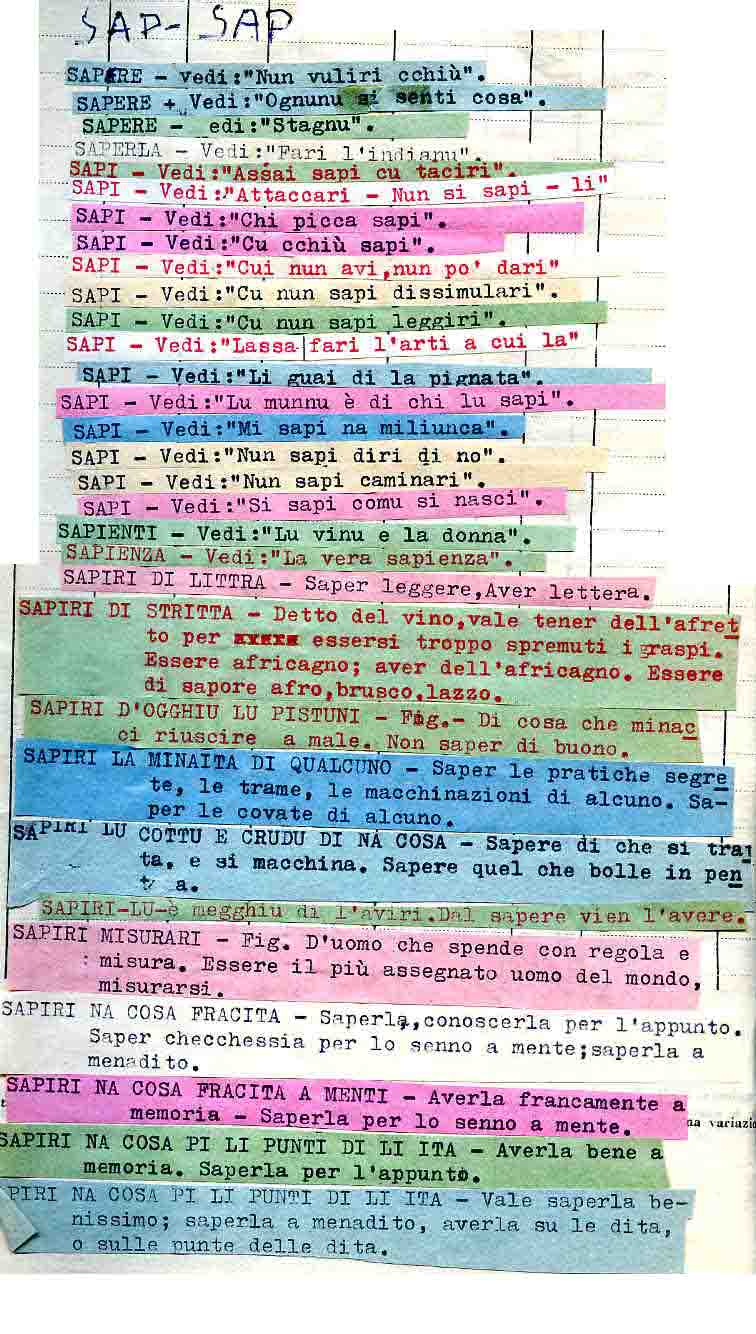 SAP- SAP
SAPERE - vedi:"Nun vuliri cchiù".
SAPERE + Vedi:"Ognunu si senti cosa".
SAPERE - edi:"Stagnu".
SAPERLA - Vedi:"Fari l'indianu".
SAPI - Vedi:"Assai sapi cu taciri".
SAPI - Vedi:"Attaccari - Nun si sapi - li"
SAPI - Vedi:"Chi picca sapi".
SAPI - Vedi:"Cu cchiù sapi".
SAPI - Vedi:"Cui nun avi,nun po' dari"
SAPI - Vedi:"Cu nun sapi dissimulari".
SAPI - Vedi:"Cu nun sapi leggiri".
SAPI - Vedi:"Lassa fari l'arti a cui la"
SAPI - Vedi:"Li guai di la pignata".
SAPI - Vedi:"Lu munnu è di chi lu sapi".
SAPI - Vedi:"Mi sapi na miliunca".
SAPI - Vedi:"Nun sapi diri di no".
SAPI - Vedi:"Nun sapi caminari".
SAPI - Vedi:"Si sapi comu si nasci".
SAPIENTI - Vedi:"Lu vinu e la donna".
SAPIENZA - Vedi:"La vera sapienza".
SAPIRI DI LITTRA - Saper leggere,Aver lettera.
SAPIRI DI STRITTA - Detto del vino,vale tener dell'afret
to per essersi troppo spremuti i graspi.
Essere africagno; aver dell'africagno. Essere
di sapore afro,brusco,lazzo.
SAPIRI D'OGGHIU LU PISTUNI - Fig.- Di cosa che minac
ci riuscire a male. Non saper di buono.
SAPIRI LA MINAITA DI QUALCUNO - Saper le pratiche segre
te, le trame, le macchinazioni di alcuno. Sa-
per le covate di alcuno.
SAPIRI LU COTTU E CRUDU DI NA COSA - Sapere di che si trat
ta, e si macchina. Sapere quel che bolle in pen
t a.
SAPIRI-LU-è megghiu di l'aviri.Dal sapere vien l'avere.
SAPIRI MISURARI - Fig. D'uomo che spende con regola e
misura. Essere il più assegnato uomo del mondo,
misurarsi.
SAPIRI NA COSA FRACITA - Saperla,conoscerla per l'appunto.
Saper checchessia per lo senno a mente;saperla a
menadito.
SAPIRI NA COSA FRACITA A MENTI - Averla francamente a
memoria - Saperla per lo senno a mente.
na variazio
SAPIRI NA COSA PI LI PUNTI DI LI ITA - Averla bene a
memoria. Saperla per l'appunto.
PIRI NA COSA PI LI PUNTI DI LI ITA - Vale saperla be-
nissimo; saperla a menadito, averla su le dita,
o sulle punte delle dita.